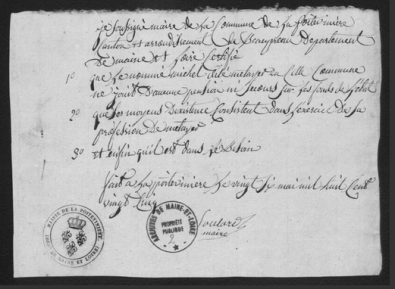 je soussigné maire de la Commune de la poitevinière
Canton et arrondissement de Beaupreau Departement
de maine et Loire Certifie
1o que le nommé michel metayer en cette Commune
ne jouit d'aucune pension ni secours sur les fonds de l'état
2o que ses moyens d'existence Consistent dans l'exercice de sa
profession de metayer
3o et enfin qu'il est dans le besoin
fait a la poitevinière le vingt six mai mil huit Cent
vingt
maire
ARCHIVES DE MAINE-ET-LOIRE
PROPRIÉTÉ
PUBLIQUE
MAIRIE DE LA POITEVINIERE